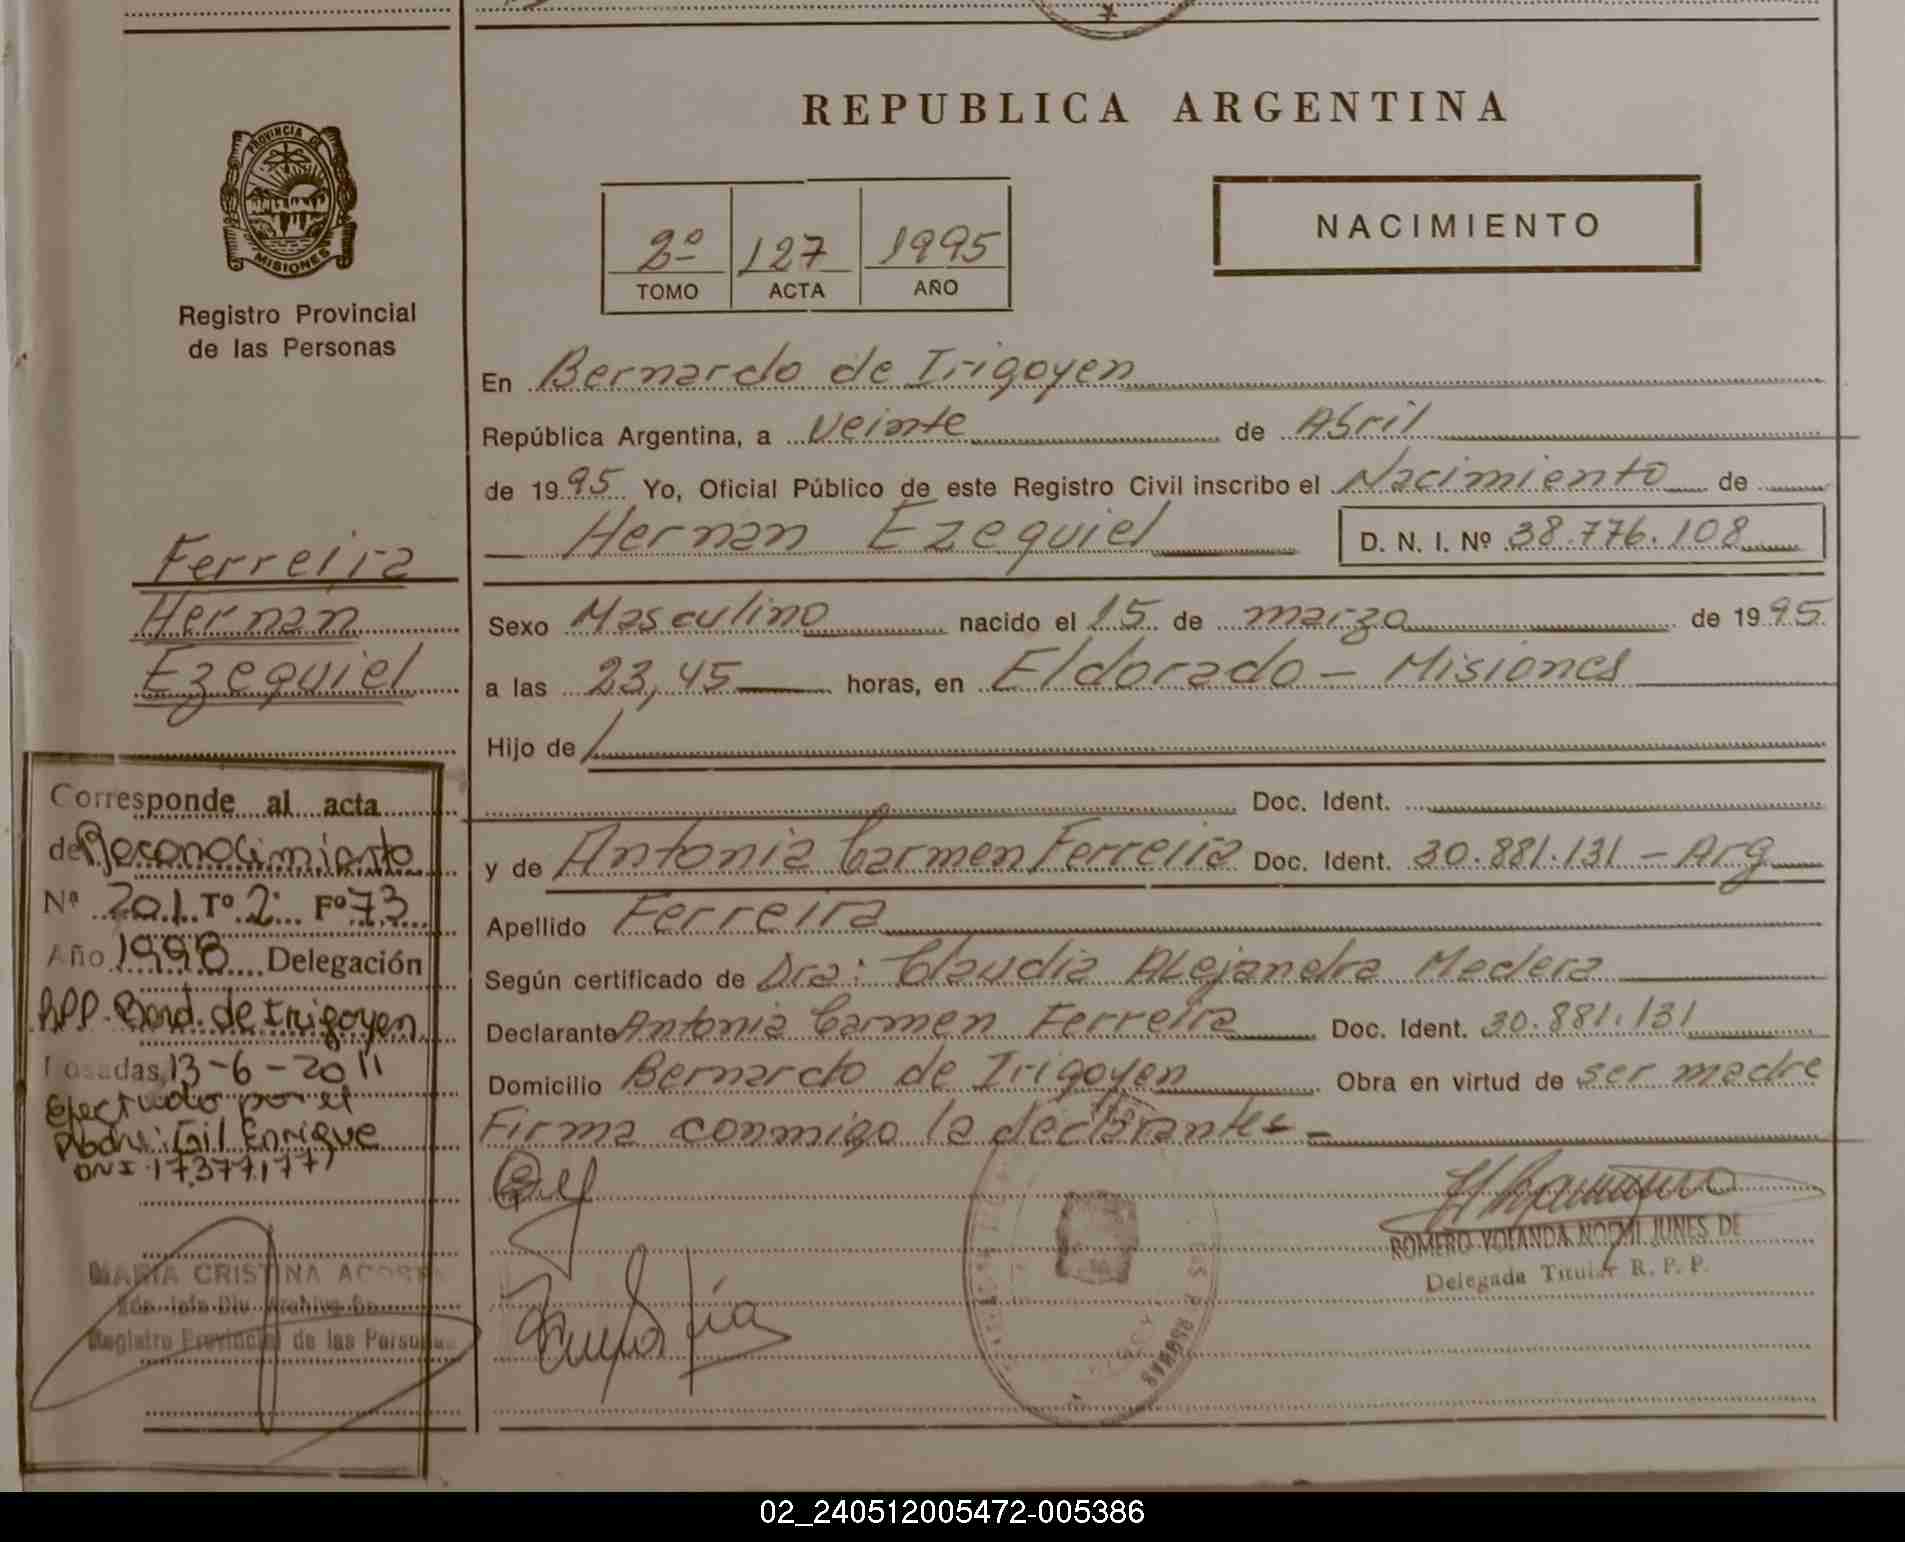 REPUBLICA ARGENTINA
PROVINCIA DE
MISIONES
Registro Provincial
de las Personas
2º 127 1995
TOMO ACTA AÑO
NACIMIENTO
En Bernardo de Irigoyen
República Argentina, a Veinte de Abril
de 1995 Yo, Oficial Público de este Registro Civil inscribo el Nacimiento de
Hernan Ezequiel D. N. I. Nº 38.776.108
Sexo Masculino nacido el 15 de marzo de 1995
a las 23,45 horas, en Eldorado - Misiones
Hijo de
Doc. Ident.
y de Antonia Carmen Ferreira Doc. Ident. 30.881.131 - Arg
Apellido Ferreira
Según certificado de Dra: Claudia Alejandra Madera
Declarante Antonia Carmen Ferreira Doc. Ident. 30.881.131
Domicilio Bernardo de Irigoyen Obra en virtud de ser madre
Firma conmigo la declarante -
ROMERO YOLANDA NOEMI JUNES DE
Delegada Titular R. P. P.
Ferreira
Hernan
Ezequiel
Corresponde al acta
de Reconocimiento
Nº 201 Tº 2º Fº 73
Año 1998 Delegación
RPP. Bord. de Irigoyen
Posadas, 13-6-2011
Efectuado por el
Padre: Gil Enrique
DNI 17.377.177
MARIA CRISTINA ACOSTA
Registro Provincial de las Personas
02_240512005472-005386